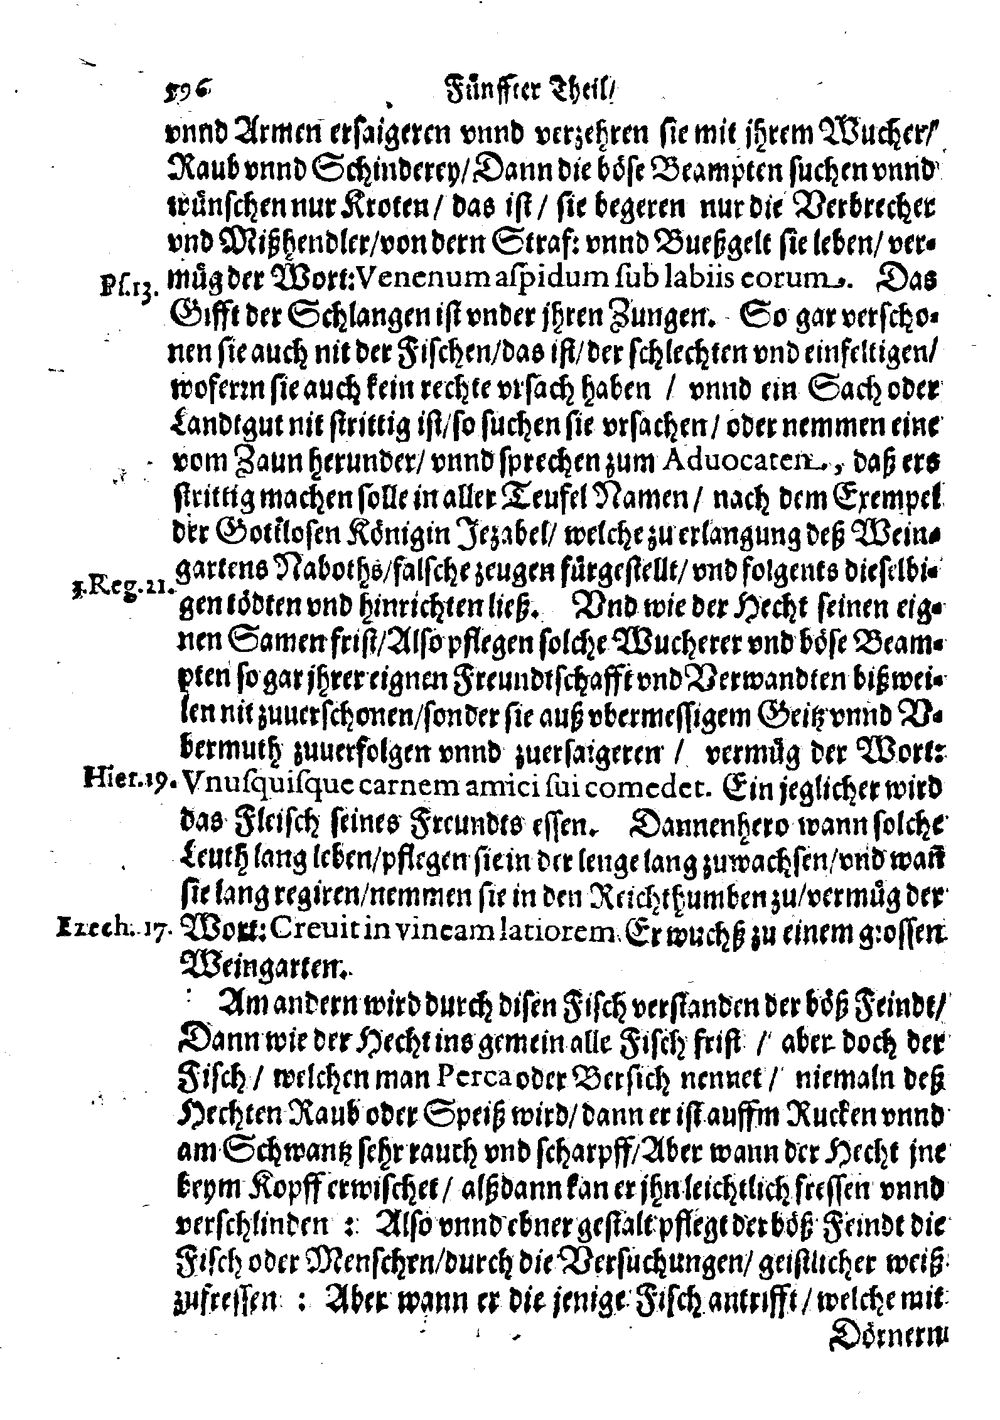 596 Fünffter Theil/
vnnd Armen ersaigeren vnnd verzehren sie mit jhrem Wucher/
Raub vnnd Schinderey/Dann die böse Beampten suchen vnnd
wünschen nur Kroten/ das ist/ sie begeren nur die Verbrecher
vnd Mißhendler/von dern Straf: vnnd Bueßgelt sie leben/ ver-
Ps.13. müg der Wort:Venenum aspidum sub labiis eorum. Das
Gifft der Schlangen ist vnder jhren Zungen. So gar verscho-
nen sie auch nit der Fischen/das ist/der schlechten vnd einfeltigen/
woferrn sie auch kein rechte vrsach haben / vnnd ein Sach oder
Landtgut nit strittig ist/so suchen sie vrsachen/ oder nemmen eine
vom Zaun herunder/ vnnd sprechen zum Aduocaten, daß ers
strittig machen solle in aller Teufel Namen/ nach dem Exempel
der Gottlosen Königin Jezabel/ welche zu erlangung deß Wein-
gartens Naboths/falsche zeugen fürgestellt/ vnd folgents dieselbi-
3.Reg.21. gen tödten vnd hinrichten ließ. Vnd wie der Hecht seinen eig-
nen Samen frist/Also pflegen solche Wucherer vnd böse Beam-
pten so gar jhrer eignen Freundtschafft vnd Verwandten bißwei-
len nit zuuerschonen/sonder sie auß vbermessigem Geitz vnnd V-
bermuth zuuerfolgen vnnd zuersaigeren / vermüg der Wort:
Hier.19. Vnusquisque carnem amici sui comedet. Ein jeglicher wird
das Fleisch seines Freundts essen. Dannenhero wann solche
Leuth lang leben/pflegen sie in der lenge lang zuwachsen/vnd wañ
sie lang regiren/nemmen sie in den Reichthumben zu/vermüg der
Ezech. 17. Wort:Crevit in vineam latiorem. Er wuchß zu einem grossen
Weingarten.
Am andern wird durch disen Fisch verstanden der böß Feindt/
Dann wie der Hecht ins gemein alle Fisch frist / aber doch der
Fisch / welchen man Perca oder Bersich nennet / niemaln deß
Hechten Raub oder Speiß wird/ dann er ist auffm Rucken vnnd
am Schwantz sehr rauch vnd scharpff/Aber wann der Hecht jne
beym Kopff erwischet/ alßdann kan er jhn leichtlich fressen vnnd
verschlinden : Also vnnd ebner gestalt pflegt der böß Feindt die
Fisch oder Menschen/durch die Versuchungen/ geistlicher weiß
zufressen : Aber wann er die jenige Fisch antrifft/ welche mit
Dörnern